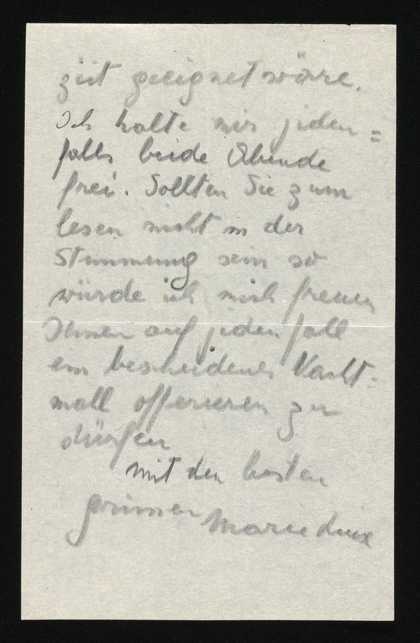 zeit geeignet wäre.
Ich halte mir jeden=
falls beide Abende
frei. Sollten Sie zum
lesen nicht in der
Stimmung sein so
würde ich mich freuen
Ihnen auf jeden fall
ein bescheidenes Nacht-
mall offerieren zu
dürfen
mit den besten
grüssen Marie